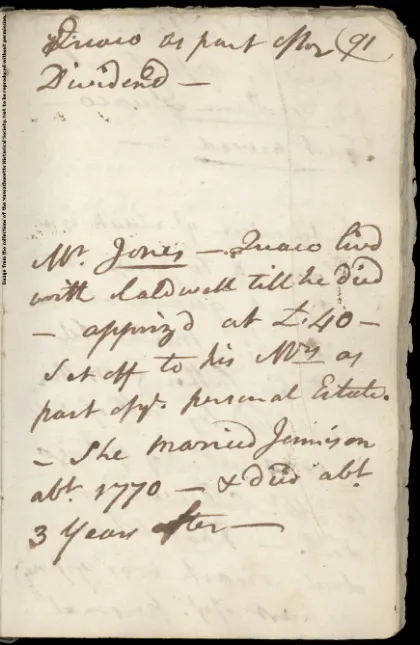 Quaco as part of her 91
Dividend —
Mr. Jones — Quaco livd
with Caldwell till he died
— apprizd at £.40 —
Set off to his Wdw as
part of ye. personal Estate.
— She married Jennison
abt. 1770 — & died abt.
3 Years after —
Image from the collections of the Massachusetts Historical Society. Not to be reproduced without permission.